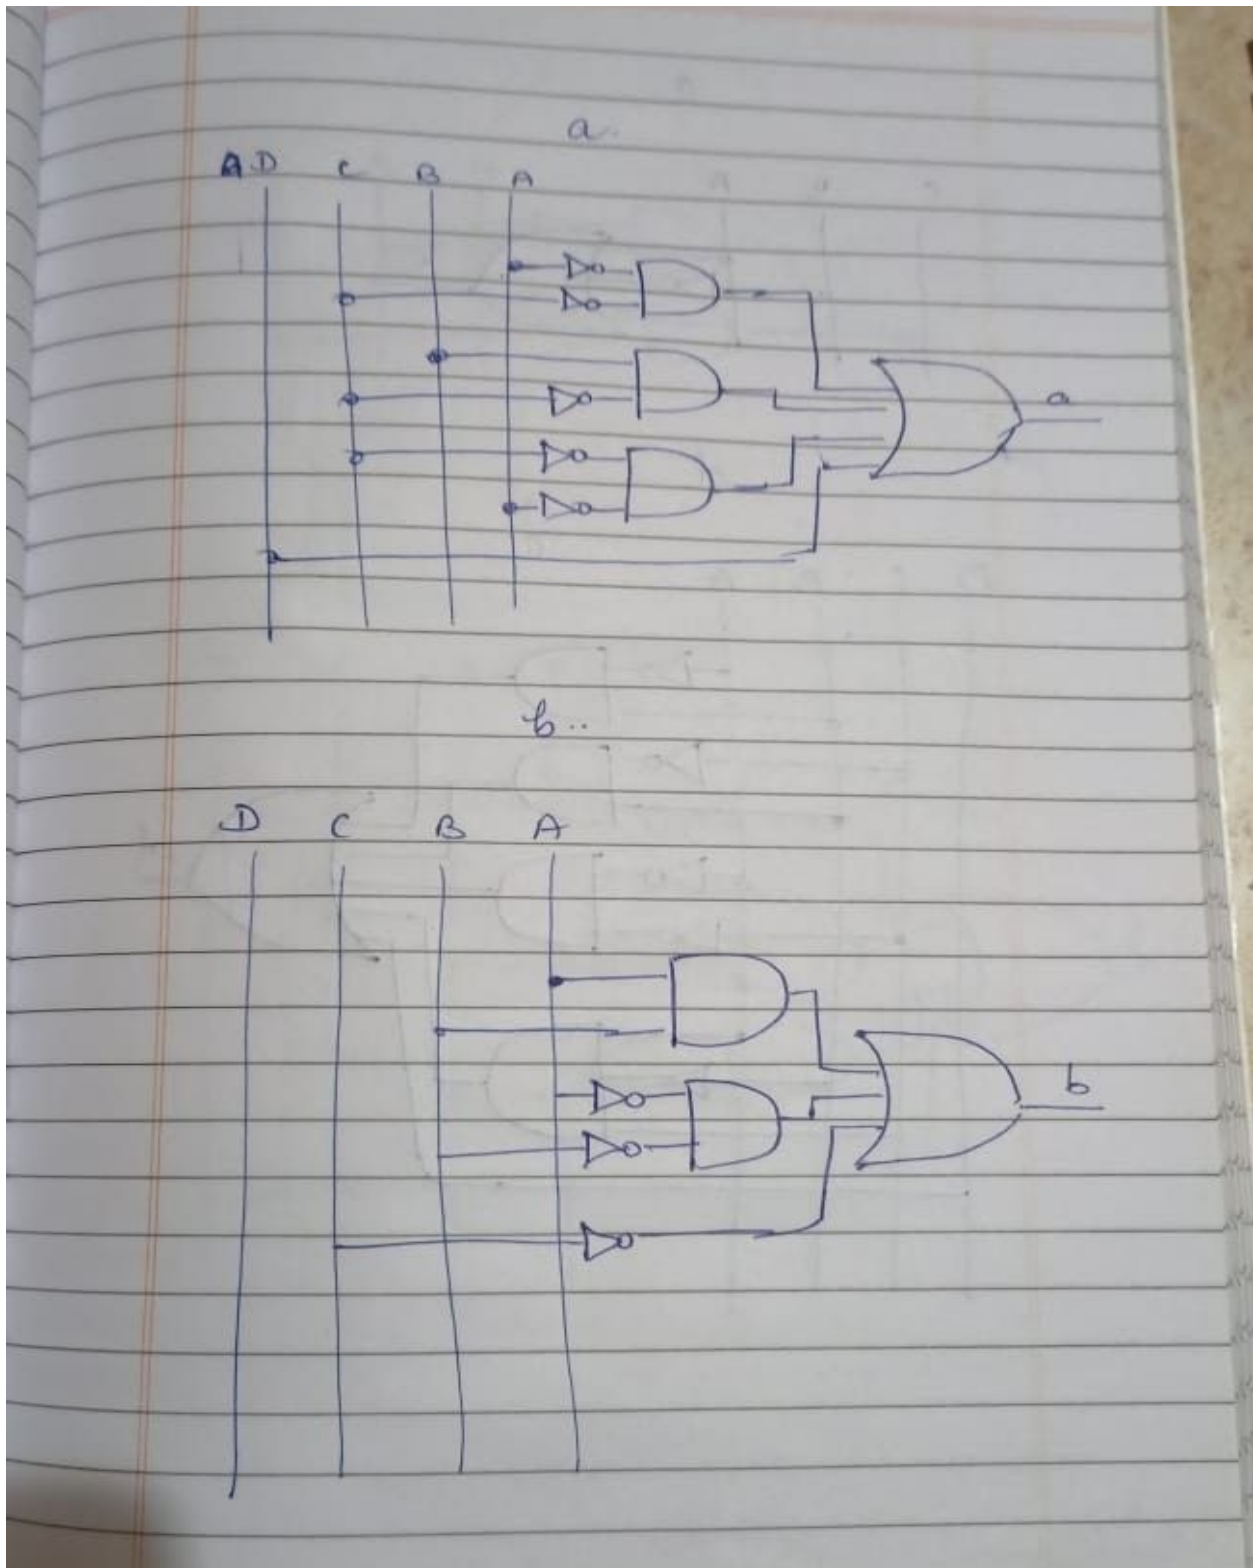 a.
A D C B A
a
b..
D C B A
b